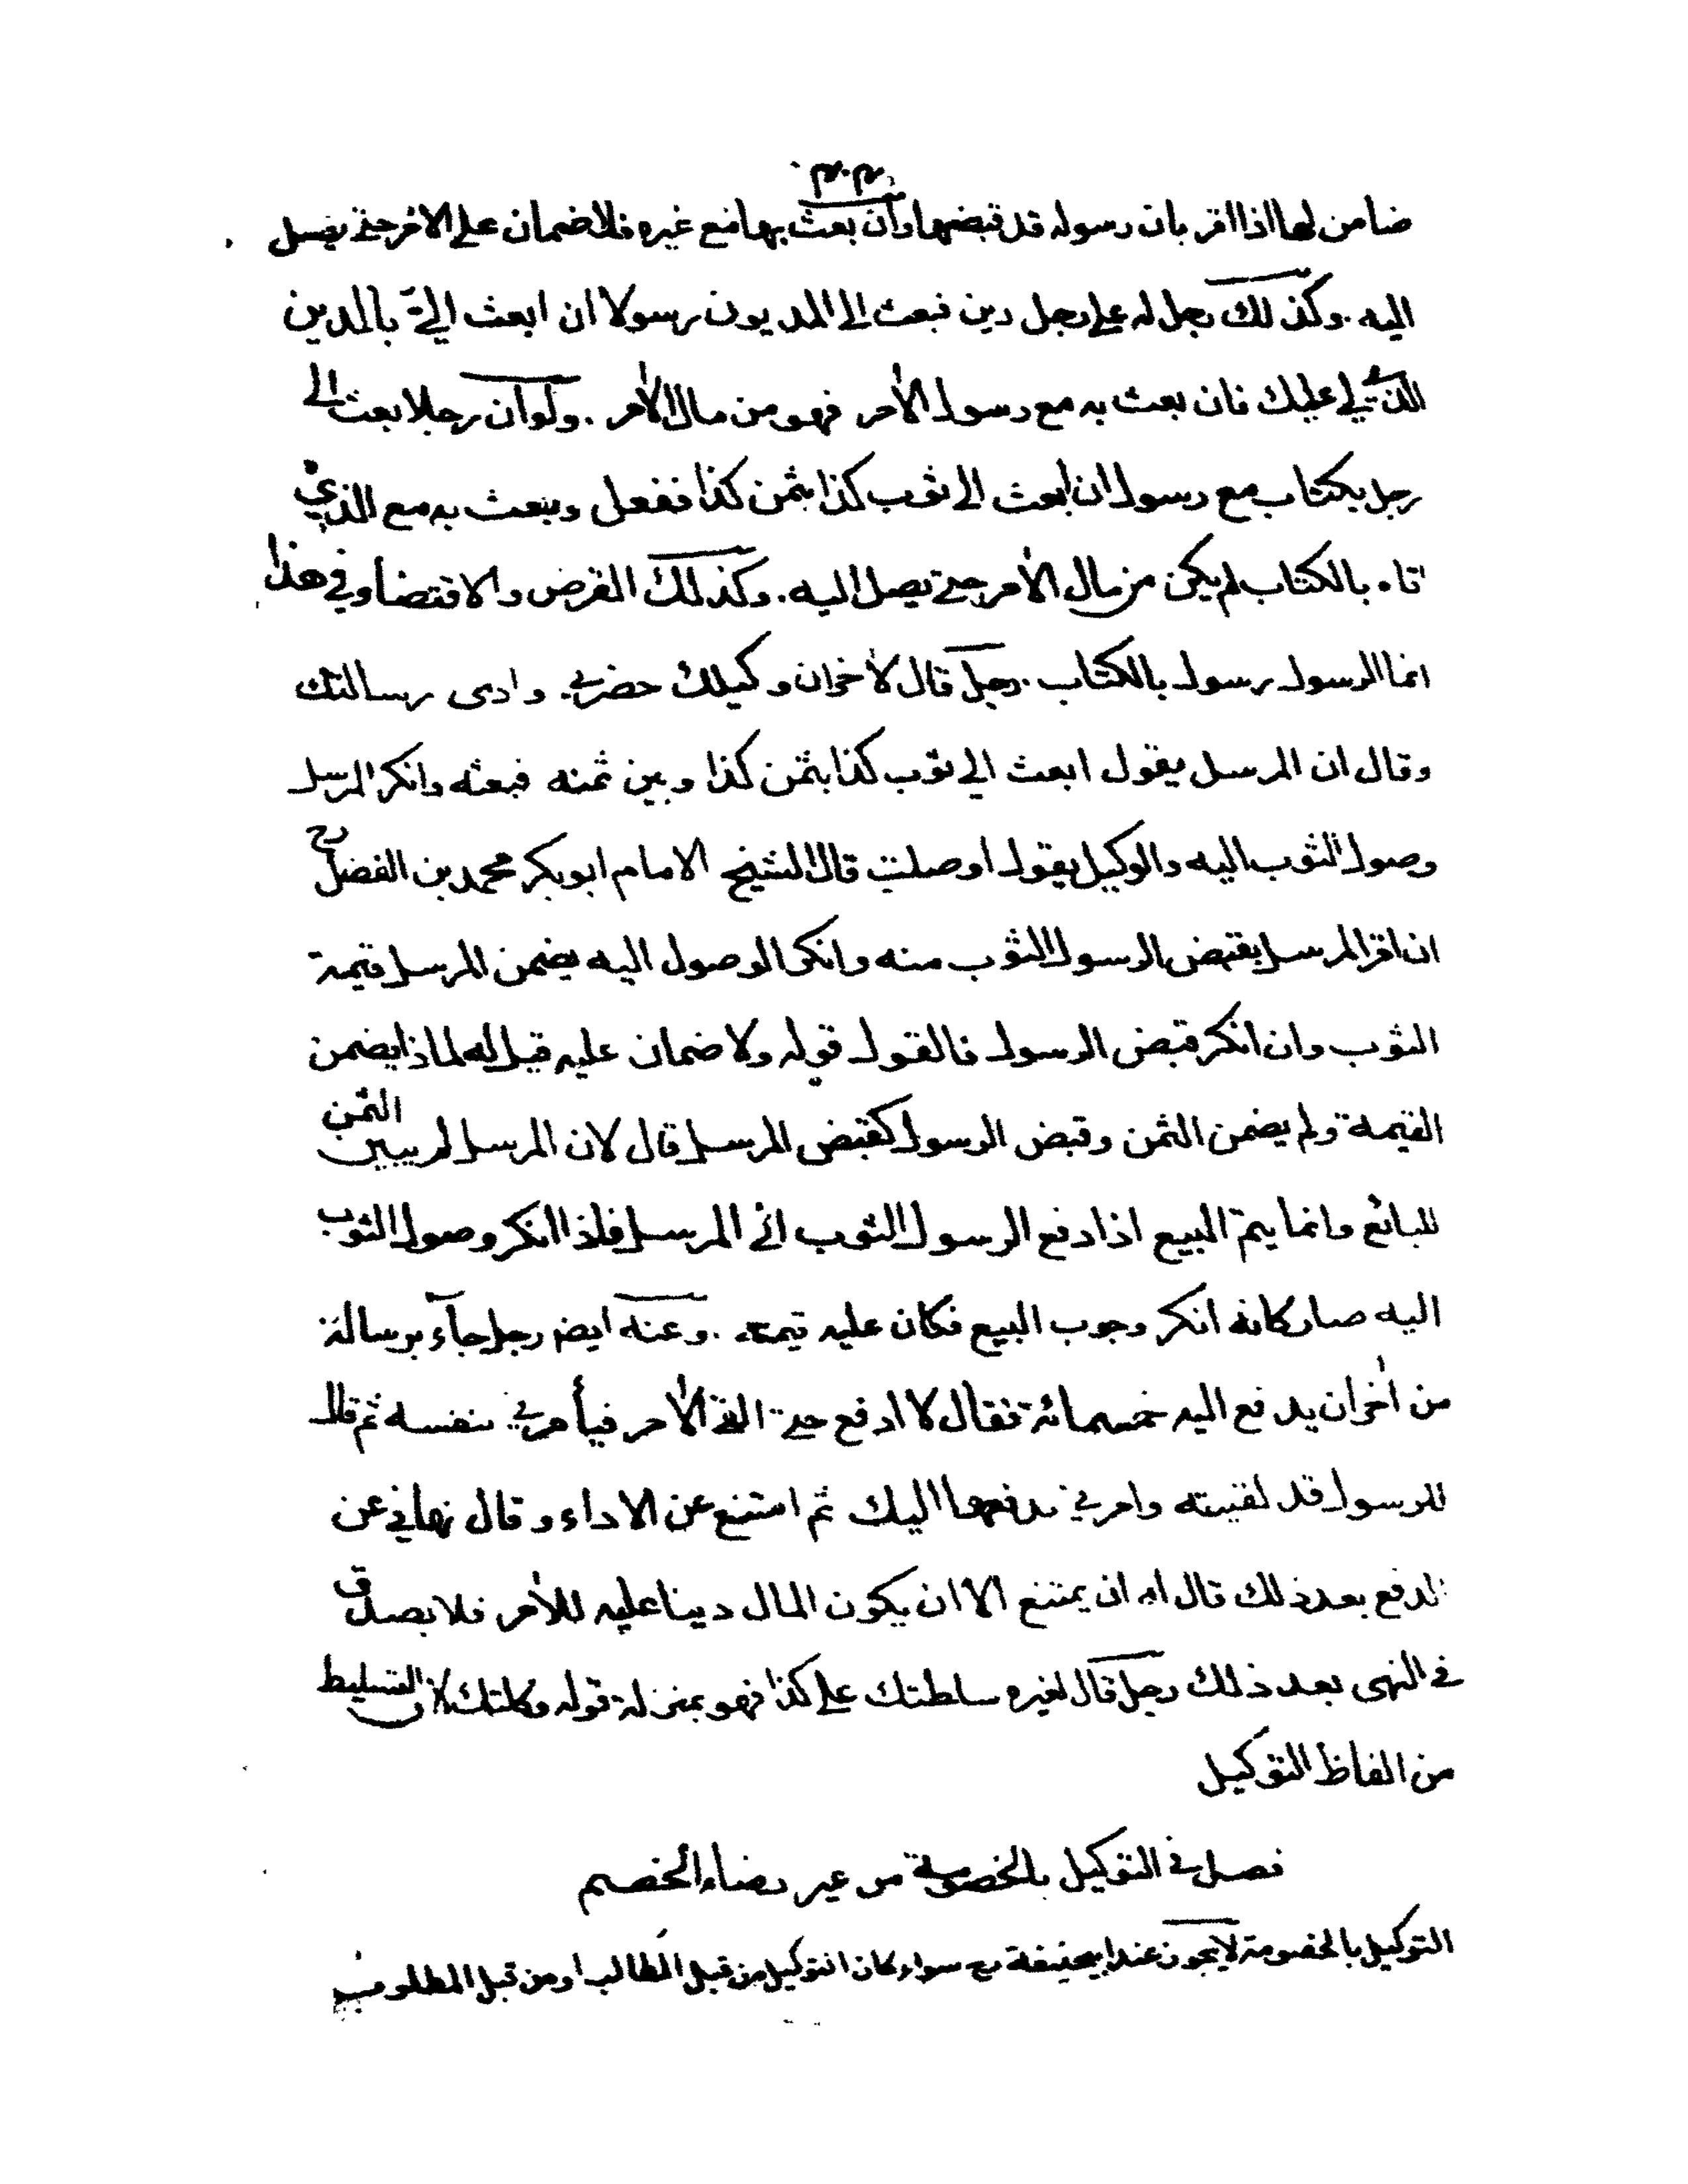 ضامن لها اذا اقر بان رسوله قد قبضها وان بعث بها مع غيره فلا ضمان على الآمر حتى يصل
اليه . وكذلك رجل له على رجل دين فبعث الى المديون رسولا ان ابعث الىّ بالدين
الذي لي عليك فان بعث به مع رسول الآمر فهو من مال الآمر . ولو ان رجلا بعث الى
رجل بكتاب مع رسول ان ابعث الي ثوب كذا بثمن كذا ففعل وبعث به مع الذي
اتاه بالكتاب لم يكن من مال الآمر حتى يصل اليه . وكذلك القرض والاقتضا وفي هذا
انما الرسول رسول بالكتاب . رجل قال لآخر ان وكيلك حضرني وادى رسالتك
وقال ان المرسل يقول ابعث الي ثوب كذا بثمن كذا وبين ثمنه فبعثه وانكر المرسل
وصول الثوب اليه والوكيل يقول اوصلت قال الشيخ الامام ابوبكر محمد بن الفضل رح
ان اقر المرسل بقبض الرسول الثوب منه وانكر الوصول اليه يضمن المرسل قيمة
الثوب وان انكر قبض الرسول فالقول قوله ولا ضمان عليه قيل له لماذا يضمن
القيمة ولم يضمن الثمن وقبض الرسول كقبض المرسل قال لان المرسل لم يبين الثمن
للبائع وانما يتم البيع اذا دفع الرسول الثوب الى المرسل فاذا انكر وصول الثوب
اليه صار كانه انكر وجوب البيع فكان عليه قيمته . وعنه ايضا رجل جآء برسالة
من آخر ان يدفع اليه خمسمائة فقال لا ادفع حتى القى الآمر فيأمرني بنفسه ثم قال
للرسول قد لقيته وامرني بدفعها اليك ثم امتنع عن الاداء وقال نهاني عن
الدفع بعد ذلك قال له ان يمتنع الا ان يكون المال دينا عليه للآمر فلا يصدق
في النهى بعد ذلك رجل قال لغيره سلطتك على كذا فهو بمنزلة قوله وكلتك لان التسليط
من الفاظ التوكيل
فصل في التوكيل بالخصومة من غير رضاء الخصم
التوكيل بالخصومة لا يجوز عند ابيحنيفة رح سواء كان التوكيل من قبل الطالب او من قبل المطلوب